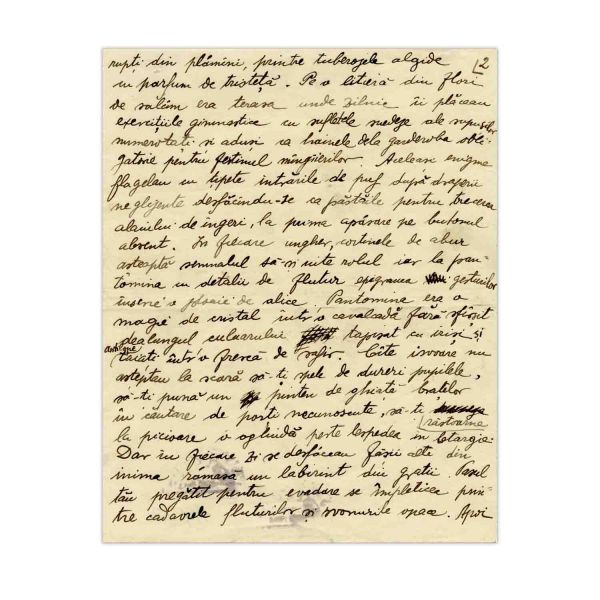 rupți din plămîni, printre tuberozele algide
2
cu parfum de tristeță. Pe o litieră din flori
de salcîm era terasa unde zilnic îi plăceau
exercițiile gimnastice cu sufletele suedeze ale supușilor
numerotați și aduși ca hainele dela garderoba obli-
gatorie pentru festinul mîngîierilor. Aceleași enigme
flagelau cu țipete intrările de puf după draperii
neglijente desfăcîndu-se ca păstăile pentru trecerea
alaiului de îngeri, la prima apăsare pe butonul
absent. În fiecare ungher, cortinele de abur
așteaptă semnalul să-și uite rolul iar la pan-
tomina cu detalii de flutur epigrama gesturilor
înscrie o ploaie de alice. Pantomina era o
magie de cristal într'o cavalcadă fără sfîrșit
dealungul culoarului tapisat cu iriși și
antilope
tăiați într'o frescă de safir. Cîte isvoare nu
așteptau la scară să-ți spele de dureri pupilele,
să-ți pună un pinten de ghiață brațelor
în căutare de poști necunoscute, să-ți
răstoarne
la picioare o oglindă peste lespedea în letargie.
Dar în fiecare zi se desfăceau fășii alte din
inima rămasă un labirint din gratii. Pasul
tău pregătit pentru evadare se împleticea prin-
tre cadavrele fluturilor și svonurile opace. Apoi